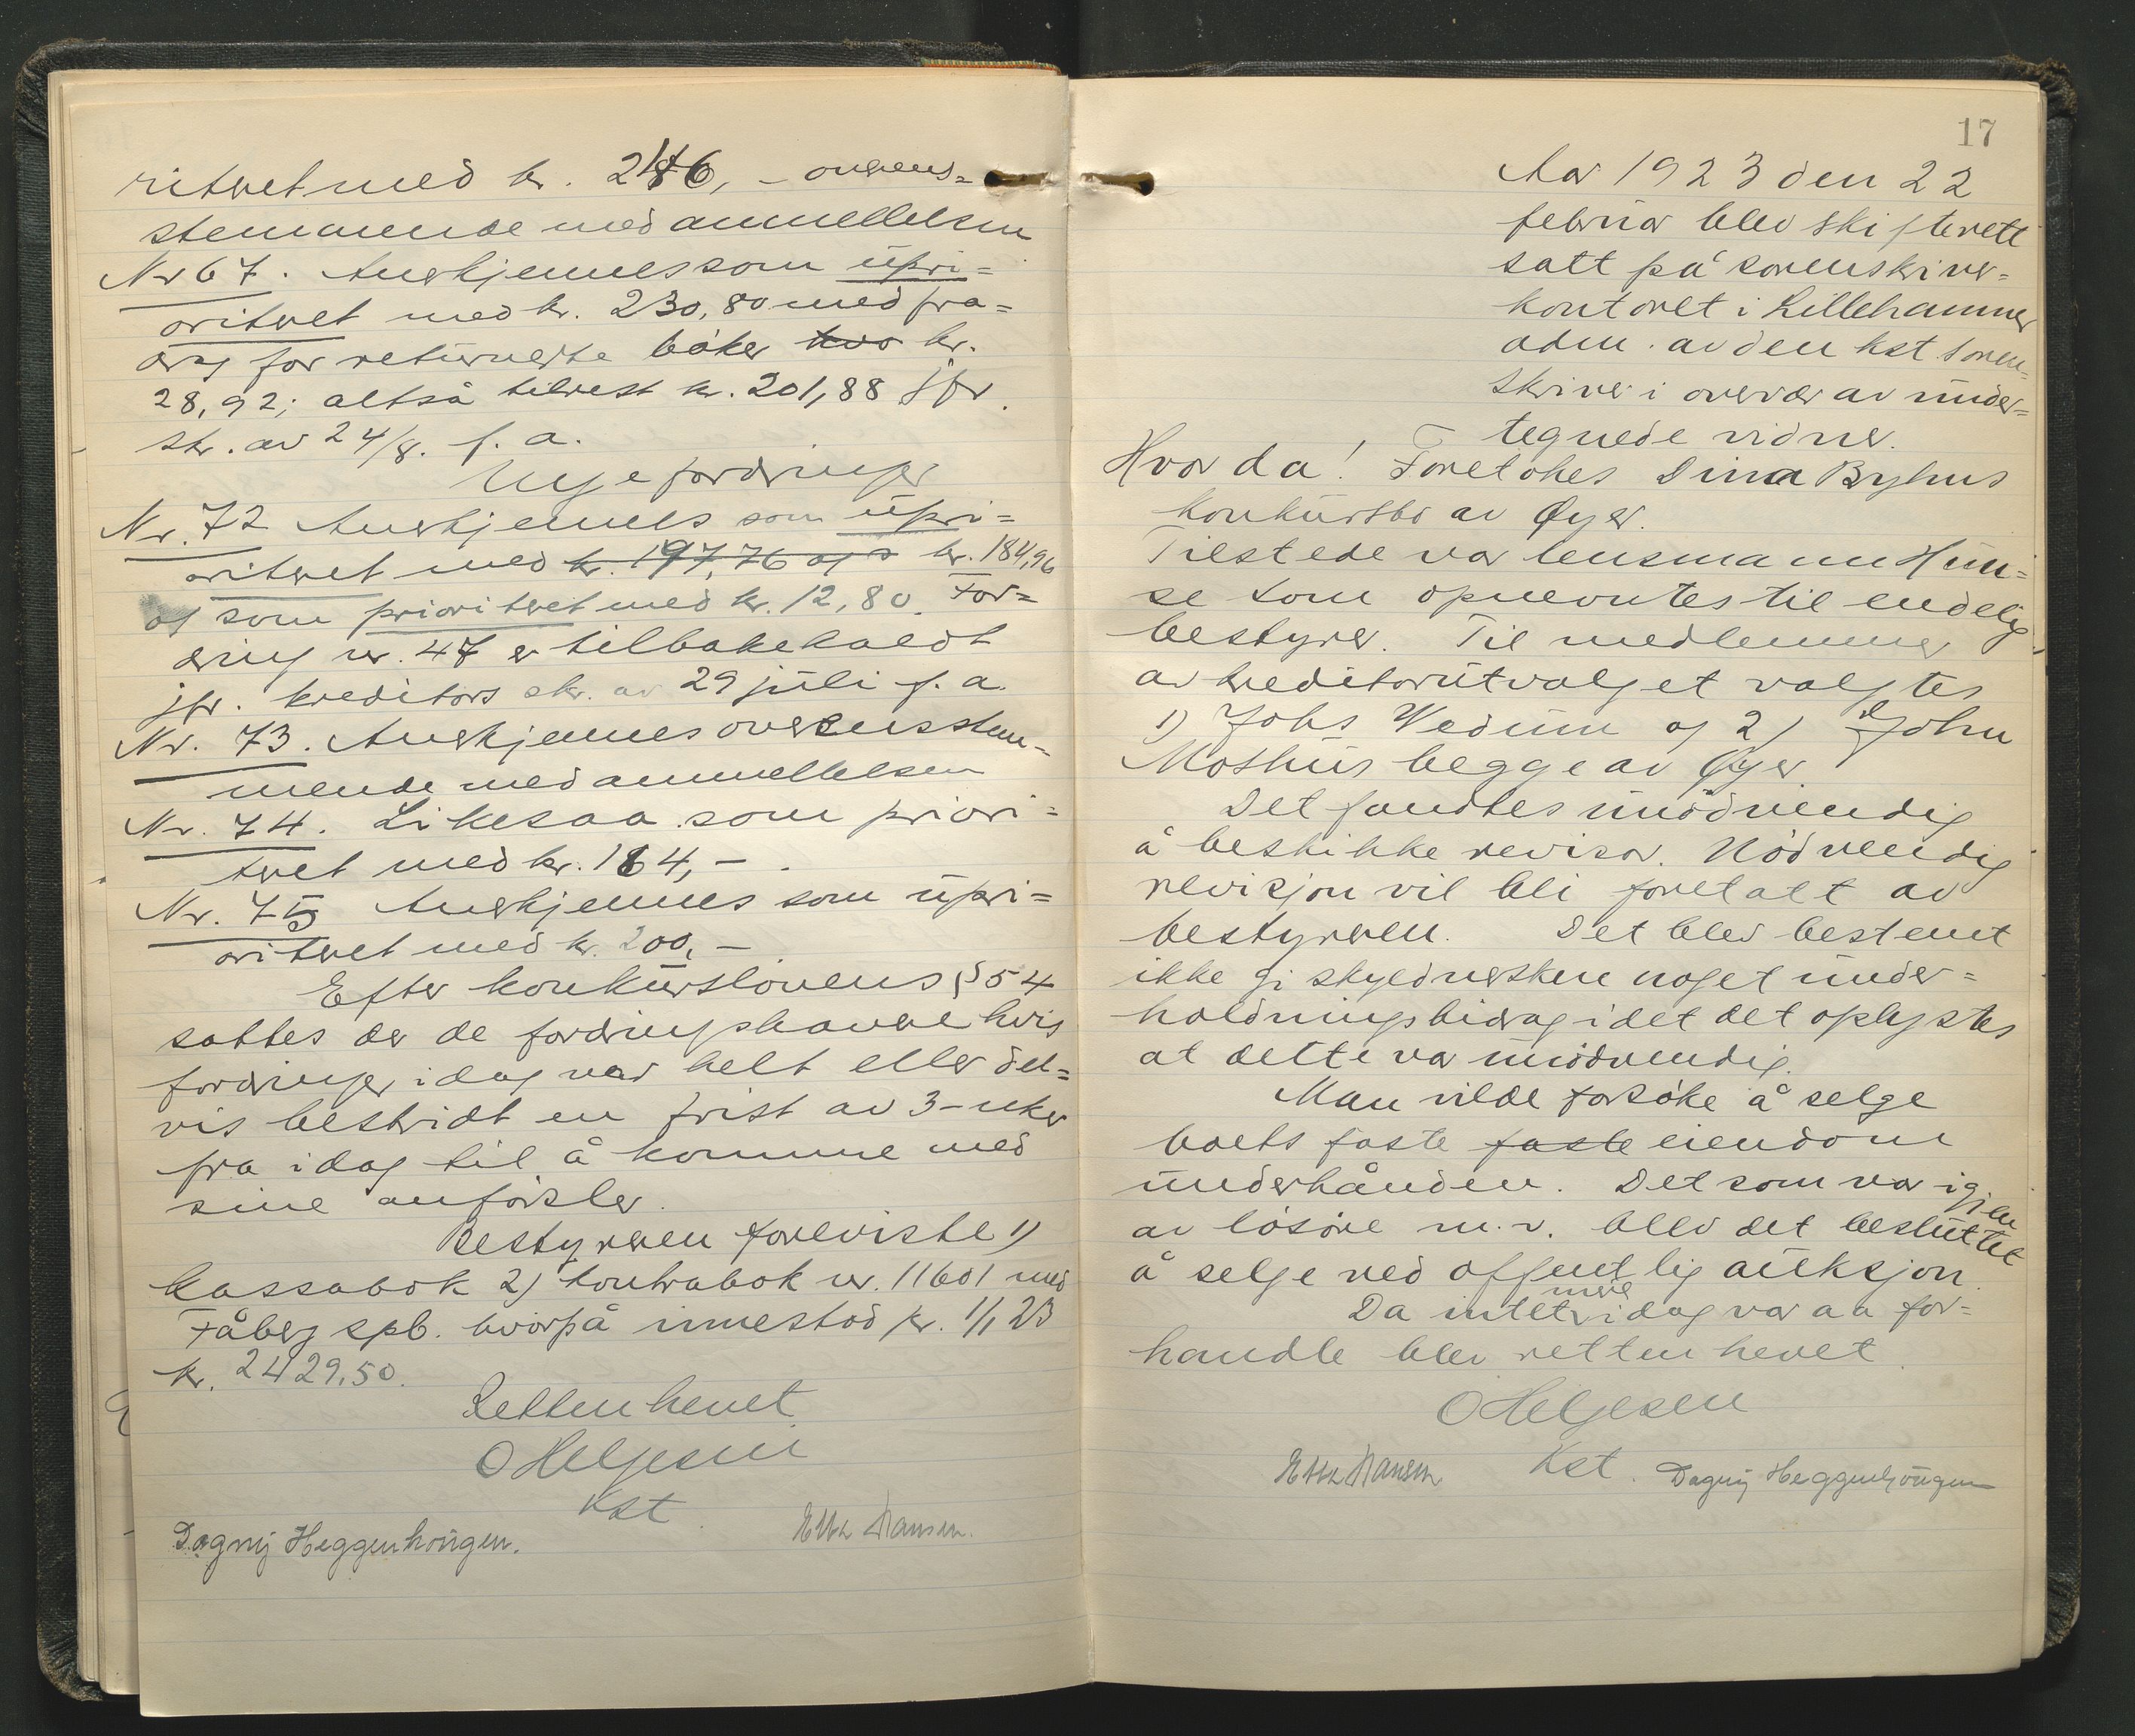 riteret med kr. 246,- overens=
stemmende med anmeldelsen
Nr 67. Anerkjennes som upri=
oritert med kr. 230,80 med fra=
drag for returnerte bøker kr.
28,92; altså tilrest kr. 201,88 jfr.
skr. av 24/8. f. a.
Nye fordringer
Nr. 72 Anerkjennes som upri=
oriteret med kr. 197,76 og s kr. 184,96
og som prioriteret med kr. 12,80. For=
dring nr. 47 er tilbakekaldt
jfr. kreditors skr. av 29 juli f. a.
Nr. 73. Anerkjennes overensstem-
mende med anmeldelsen
Nr. 74. Likesaa som priori=
teret med kr. 164,-
Nr. 75 Anerkjennes som upri=
oriteret med kr. 200,-
Efter konkurslovens § 54
sattes der de fordringshavere hvis
fordringer idag var helt eller del=
vis bestridt en frist av 3-uker
fra idag til å komme med
sine anførsler.
Bestyreren foreviste 1)
kassabok 2) kontrabok nr. 11601 med
Fåberg spb. hvorpå innestod pr. 1/1 23
kr. 2429.50.
Retten hevet
O Helgesen
Kst.
Dagny Heggenhougen. Etta Hansen.
17
Aar 1923 den 22
februar blev skifterett
satt på sorenskriver=
kontoret i Lillehammer
adm. av den kst soren=
skriver i overvær av under=
tegnede vidner.
Hvor da! Foretokes Dina Byhus
konkursbo av Øyer.
Tilstede var lensmann Hun=
se som opnevntes til endelig
bestyrer. Til medlemmer
av kreditorutvalget valgtes
1) Johs Wedum og 2) John
Moshus begge av Øyer.
Det fandtes unödvendig
å beskikke revisor. Nödvendig
revisjon vil bli foretatt av
bestyreren. Det blev bestemt
ikke gi skyldnersken noget under=
holdningsbidrag idet det oplystes
at dette var unödvendig.
Man vilde forsöke å selge
boets faste faste eiendom
underhånden. Det som var igjen
av lösöre m. v. blev det besluttet
å selge ved offentlig auksjon.
Da intet mere idag var aa for=
handle blev retten hevet.
O Helgesen
Etta Hansen Kst. Dagny Heggenhougen